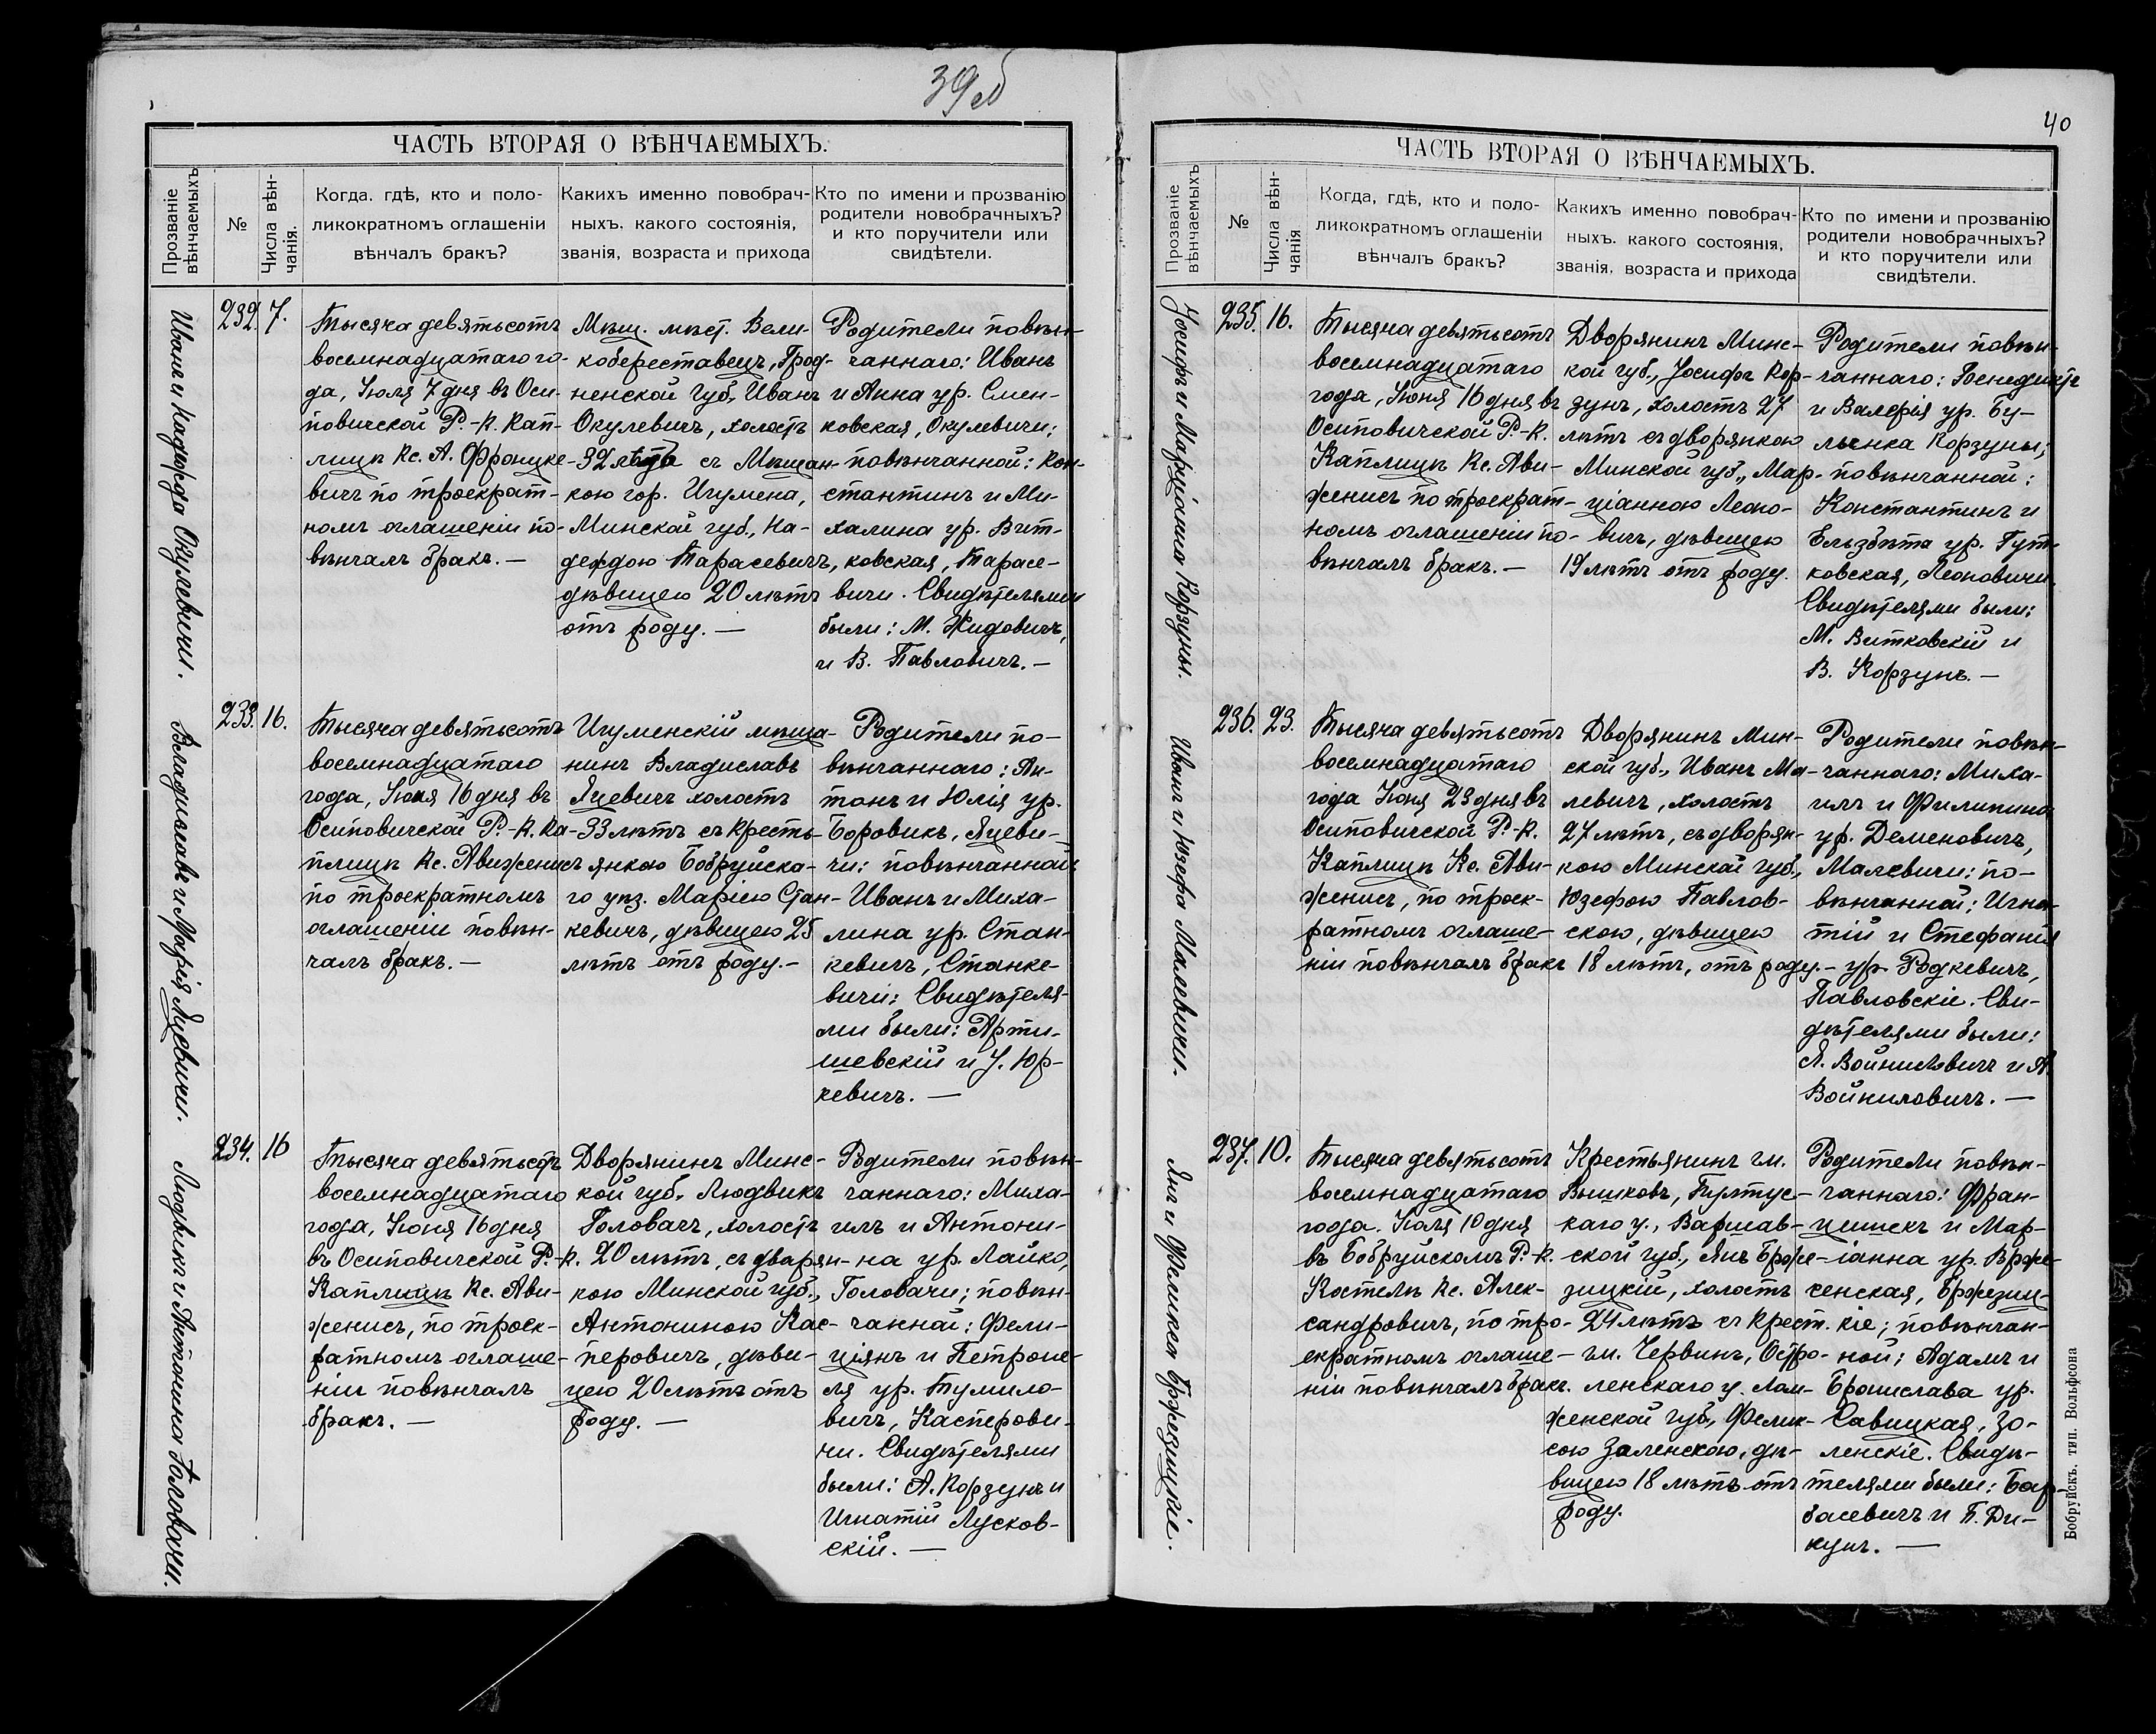 39об
ЧАСТЬ ВТОРАЯ О ВѢНЧАЕМЫХЪ.
Прозваніе
вѣнчаемыхъ
№
Числа вѣн-
чанія.
Когда. гдѣ, кто и поло-
ликократномъ оглашеніи
вѣнчалъ бракъ?
Какихъ именно повобрач-
ныхъ. какого состоянія,
званія, возраста и прихода
Кто по имени и прозванію
родители новобрачныхъ?
и кто поручители или
свидѣтели.
Иванъ и Надежда Окулевичи.
232. 7.
Тысяча девятьсотъ
восемнадцатаго го-
да, Іюля 7 дня въ Оси-
повичской Р.-К. Кап-
лицѣ Кс. А. Францке-
вичъ по троекрат-
номъ оглашеніи по-
вѣнчалъ бракъ. —
Мѣщ. мѣст. Вели-
коберестовец, Грод-
ненской губ. Иванъ
Окулевичъ, холостъ
32 лѣтъ съ Мѣщан-
кою гор. Игумена,
Минской губ., На-
деждою Тарасевичъ,
дѣвицею 20 лѣтъ
отъ роду. —
Родители повѣн-
чаннаго: Иванъ
и Анна ур. Смен-
ковская, Окулевичи;
повѣнчанной: Кон-
стантинъ и Ми-
халина ур. Вит-
ковская, Тарасе-
вичи. Свидѣтелями
были: М. Жидовичъ,
и В. Павловичъ. —
Владиславъ и Марія Яцевичи.
233. 16.
Тысяча девятьсотъ
восемнадцатаго
года, Іюня 16 дня въ
Осиповичской Р.-К. Ка-
плицѣ Кс. Авиженисъ
по троекратномъ
оглашеніи повѣн-
чалъ бракъ. —
Игуменскій мѣща-
нинъ Владиславъ
Яцевичъ холостъ
33 лѣтъ съ кресть-
янкою Бобруйска-
го уѣз. Маріею Стан-
кевичъ, дѣвицею 25
лѣтъ отъ роду. —
Родители по-
вѣнчаннаго: Ан-
тонъ и Юлія ур.
Боровикъ, Яцеви-
чи; повѣнчанной:
Иванъ и Миха-
лина ур. Стан-
кевичъ, Станке-
вичи; Свидѣтеля-
ми были: Арти-
шевскій и І. Юр-
кевичъ. —
Людвикъ и Антонина Головачи.
234. 16
Тысяча девятьсотъ
восемнадцатаго
года, Іюня 16 дня
въ Осиповичской Р.-К.
Каплицѣ Кс. Ави-
женисъ, по троек-
ратномъ оглаше-
ніи повѣнчалъ
бракъ. —
Дворянинъ Минс-
кой губ. Людвикъ
Головачъ, холостъ
20 лѣтъ, съ дворян-
кою Минской губ.,
Антониною Кас-
перовичъ, дѣви-
цею 20 лѣтъ отъ
роду. —
Родители повѣн-
чаннаго: Миха-
илъ и Антони-
на ур. Лайко,
Головачи; повѣн-
чанной: Фели-
ціянъ и Петроне-
ля ур. Тумило-
вичъ, Касперови-
чи. Свидѣтелями
были: А. Корзунъ и
Игнатій Лусков-
скій. —
40
ЧАСТЬ ВТОРАЯ О ВѢНЧАЕМЫХЪ.
Прозваніе
вѣнчаемыхъ
№
Числа вѣн-
чанія
Когда, гдѣ, кто и поло-
ликократномъ оглашеніи
вѣнчалъ бракъ?
Какихъ именно повобрач-
ныхъ. какого состоянія,
званія, возраста и прихода
Кто по имени и прозванію
родители новобрачныхъ?
и кто поручители или
свидѣтели.
Іосифъ и Марціанна Корзуны.
235. 16.
Тысяча девятьсотъ
восемнадцатаго
года, Іюня 16 дня въ
Осиповичской Р.-К.
Каплицѣ Кс. Ави-
женисъ по троекрат-
номъ оглашеніи по-
вѣнчалъ бракъ. —
Дворянинъ Минс-
кой губ., Іосифъ Кор-
зунъ, холостъ 27
лѣтъ съ дворянкою
Минской губ., Мар-
ціанною Леоно-
вичъ, дѣвицею
19 лѣтъ отъ роду.
Родители повѣн-
чаннаго: Бенедиктъ
и Валерія ур. Бу-
лынка Корзуны;
повѣнчанной:
Константинъ и
Ельзбѣта ур. Гут-
ковская, Леоновичи.
Свидѣтелями были:
М. Витковскій и
В. Корзунъ. —
Иванъ и Юзефа Малевичи.
236. 23.
Тысяча девятьсотъ
восемнадцатаго
года Іюня 23 дня въ
Осиповичской Р.-К.
Каплицѣ Кс. Ави-
женисъ, по троек-
ратномъ оглаше-
ніи повѣнчалъ бракъ
Дворянинъ Мин-
ской губ., Иванъ Ма-
левичъ, холостъ
27 лѣтъ, съ дворян-
кою Минской губ.,
Юзефою Павлов-
скою, дѣвицею
18 лѣтъ, отъ роду. —
Родители повѣн-
чаннаго: Миха-
илъ и Филипина
ур. Деменовичъ,
Малевичи; по-
вѣнчанной; Игна-
тій и Стефанія
ур. Родкевичъ,
Павловскіе. Сви-
дѣтелями были:
Я. Войниловичъ и А.
Войниловичъ. —
Янъ и Феликса Бржезицкіе.
237. 10.
Тысяча девятьсотъ
восемнадцатаго
года. Іюля 10 дня
въ Бобруйскомъ Р.-К.
Костелѣ Кс. Алек-
сандровичъ, по тро-
екратномъ оглаше-
ніи повѣнчалъ бракъ.
Крестьянинъ гм.
Вышковъ, Пултус-
каго у., Варшав-
ской губ., Янъ Брже-
зицкій, холостъ
24 лѣтъ съ крест.
гм. Червинъ, Остро-
ленскаго у. Лом-
женской губ., Фелик-
сою Заленскою, дѣ-
вицею 18 лѣтъ отъ
роду.
Родители повѣн-
чаннаго: Фран-
цишекъ и Мар-
іанна ур. Врже-
сенская, Бржезиц-
кіе; повѣнчан-
ной; Адамъ и
Брониславa ур.
Савицкая, Зо-
ленскіе. Свидѣ-
телями были: Бар-
басевичъ и Б. Ди-
кунъ. —
Бобруйскъ. тип. Вольфсона